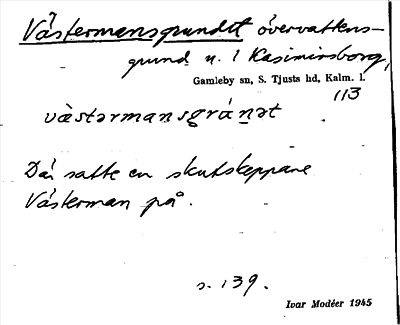 Västermansgrundet övervattens-
grund u. l Kasimirsborg,
Gamleby sn, S. Tjusts hd, Kalm. l.
113
væ̀stərmansgrúnət
Där satte en skutskeppare
Västerman på.
s. 139.
Ivar Modéer 1945